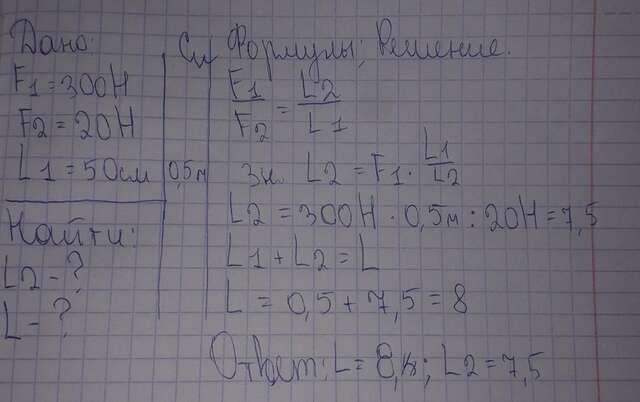 Дано:
F1 = 300Н
F2 = 20Н
L1 = 50см
0,5м
Найти:
L2 - ?
L - ?
Си
Формулы; Решение.
F1/F2 = L2/L1
Зн. L2 = F1 · L1/L2
L2 = 300Н · 0,5м : 20Н = 7,5
L1 + L2 = L
L = 0,5 + 7,5 = 8
Ответ: L = 8 м; L2 = 7,5